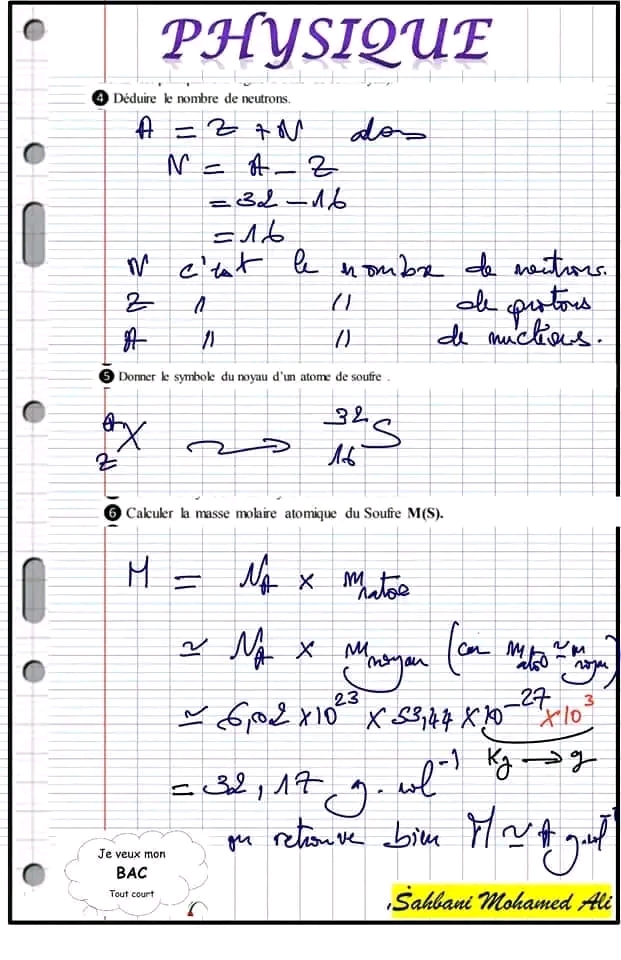 PHYSIQUE
4 Déduire le nombre de neutrons.
A = Z + N donc
N = A - Z
= 32 - 16
= 16
N c'est le nombre de neutrons.
Z " " de protons
A " " de nucléons.
5 Donner le symbole du noyau d'un atome de soufre .
A Z X → 32 16 S
6 Calculer la masse molaire atomique du Soufre M(S).
M = NA × m atome
≃ NA × m noyau (car m atome ≃ m noyau)
≃ 6,02 × 10^23 × 53,44 × 10^-27 × 10^3
Kg → g
= 32,17 g.mol^-1
on retrouve bien M ≃ A g.mol^-1
Je veux mon
BAC
Tout court
Sahbani Mohamed Ali